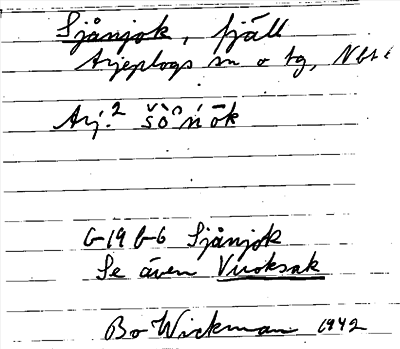 Sjånjok, fjäll
Arjeplogs sn o tg, Nbt l
Arj.² šò̂ńōk
G-19 G-6 Sjånjok
Se även Vuoksak
Bo Wickman 1942